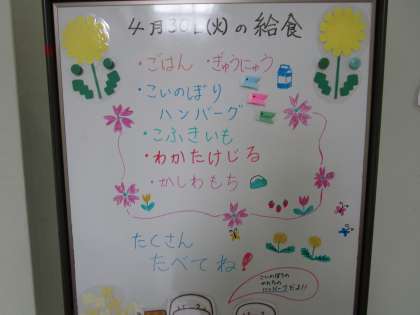 4月30日(火)の給食
・ごはん ・ぎゅうにゅう
・こいのぼり
ハンバーグ
・こふきいも
・わかたけじる
・かしわもち
たくさん
たべてね!
こいのぼりの
かたちの
ハンバーグだよ!!